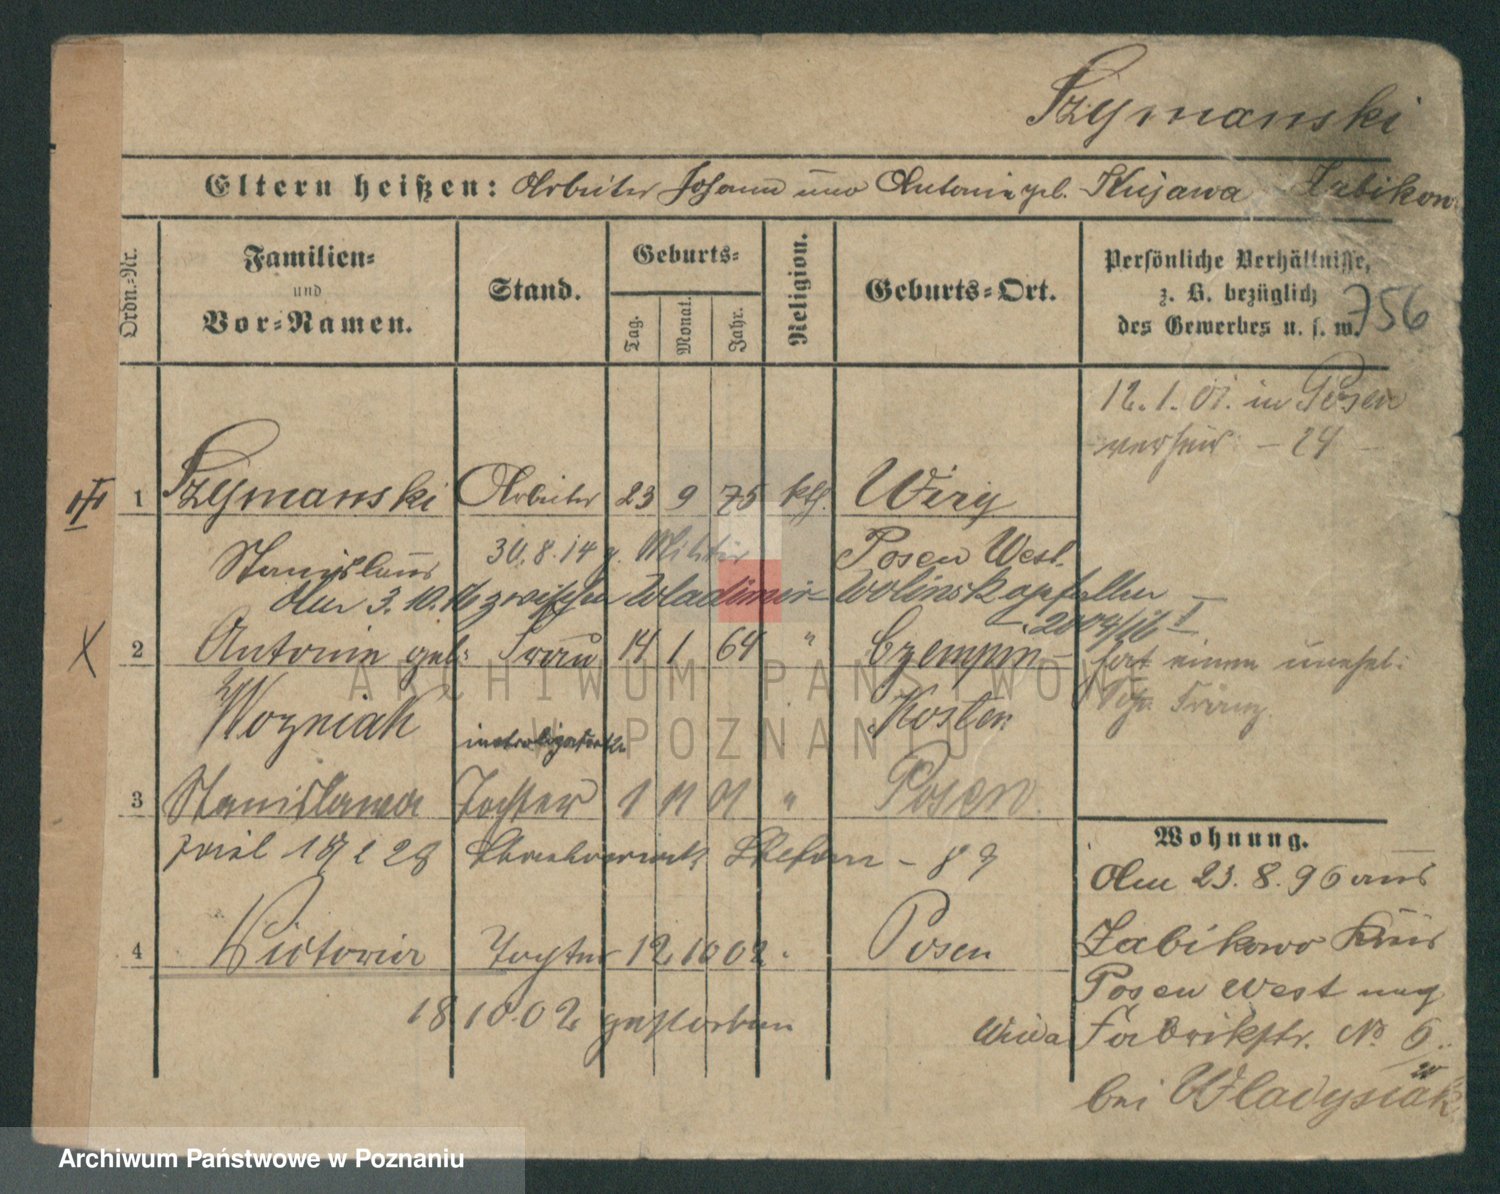 Szymanski
Eltern heißen: Arbeiter Johann und Antonie geb. Kujawa Zabikowo
Ordn.-Nr.
Familien-
und
Vor-Namen.
Stand.
Geburts-
Tag.
Monat.
Jahr.
Religion.
Geburts-Ort.
Persönliche Verhältnisse,
z. B. bezüglich
des Gewerbes u. s. w.
756
12.1.01. in Posen
verheir. – 24 –
1 Szymanski Arbeiter 23 9 75 kth. Wiry
Stanislaus 30.8.14 z. Militär Posen West.
Am 3.10.16 zwischen Wladimir-Wolinsk gefallen –
2004/16 I
X 2 Antonie geb. Frau 14 1 64 " Czempin
hat einen unehel.
Wozniak Kosten
Franz
3 Stanislawa Tochter 1 11 01 " Posen
18/1 28 Stefan – 89
4 Victoria Tochter 12 10 02 . Posen
18.10.02 gestorben
Wohnung.
Am 23.8.96 aus
Zabikowo Kreis
Posen West nach
Wilda Fabrikstr. No 6.
bei Wladysiak
ARCHIWUM PAŃSTWOWE
W POZNANIU
Archiwum Państwowe w Poznaniu